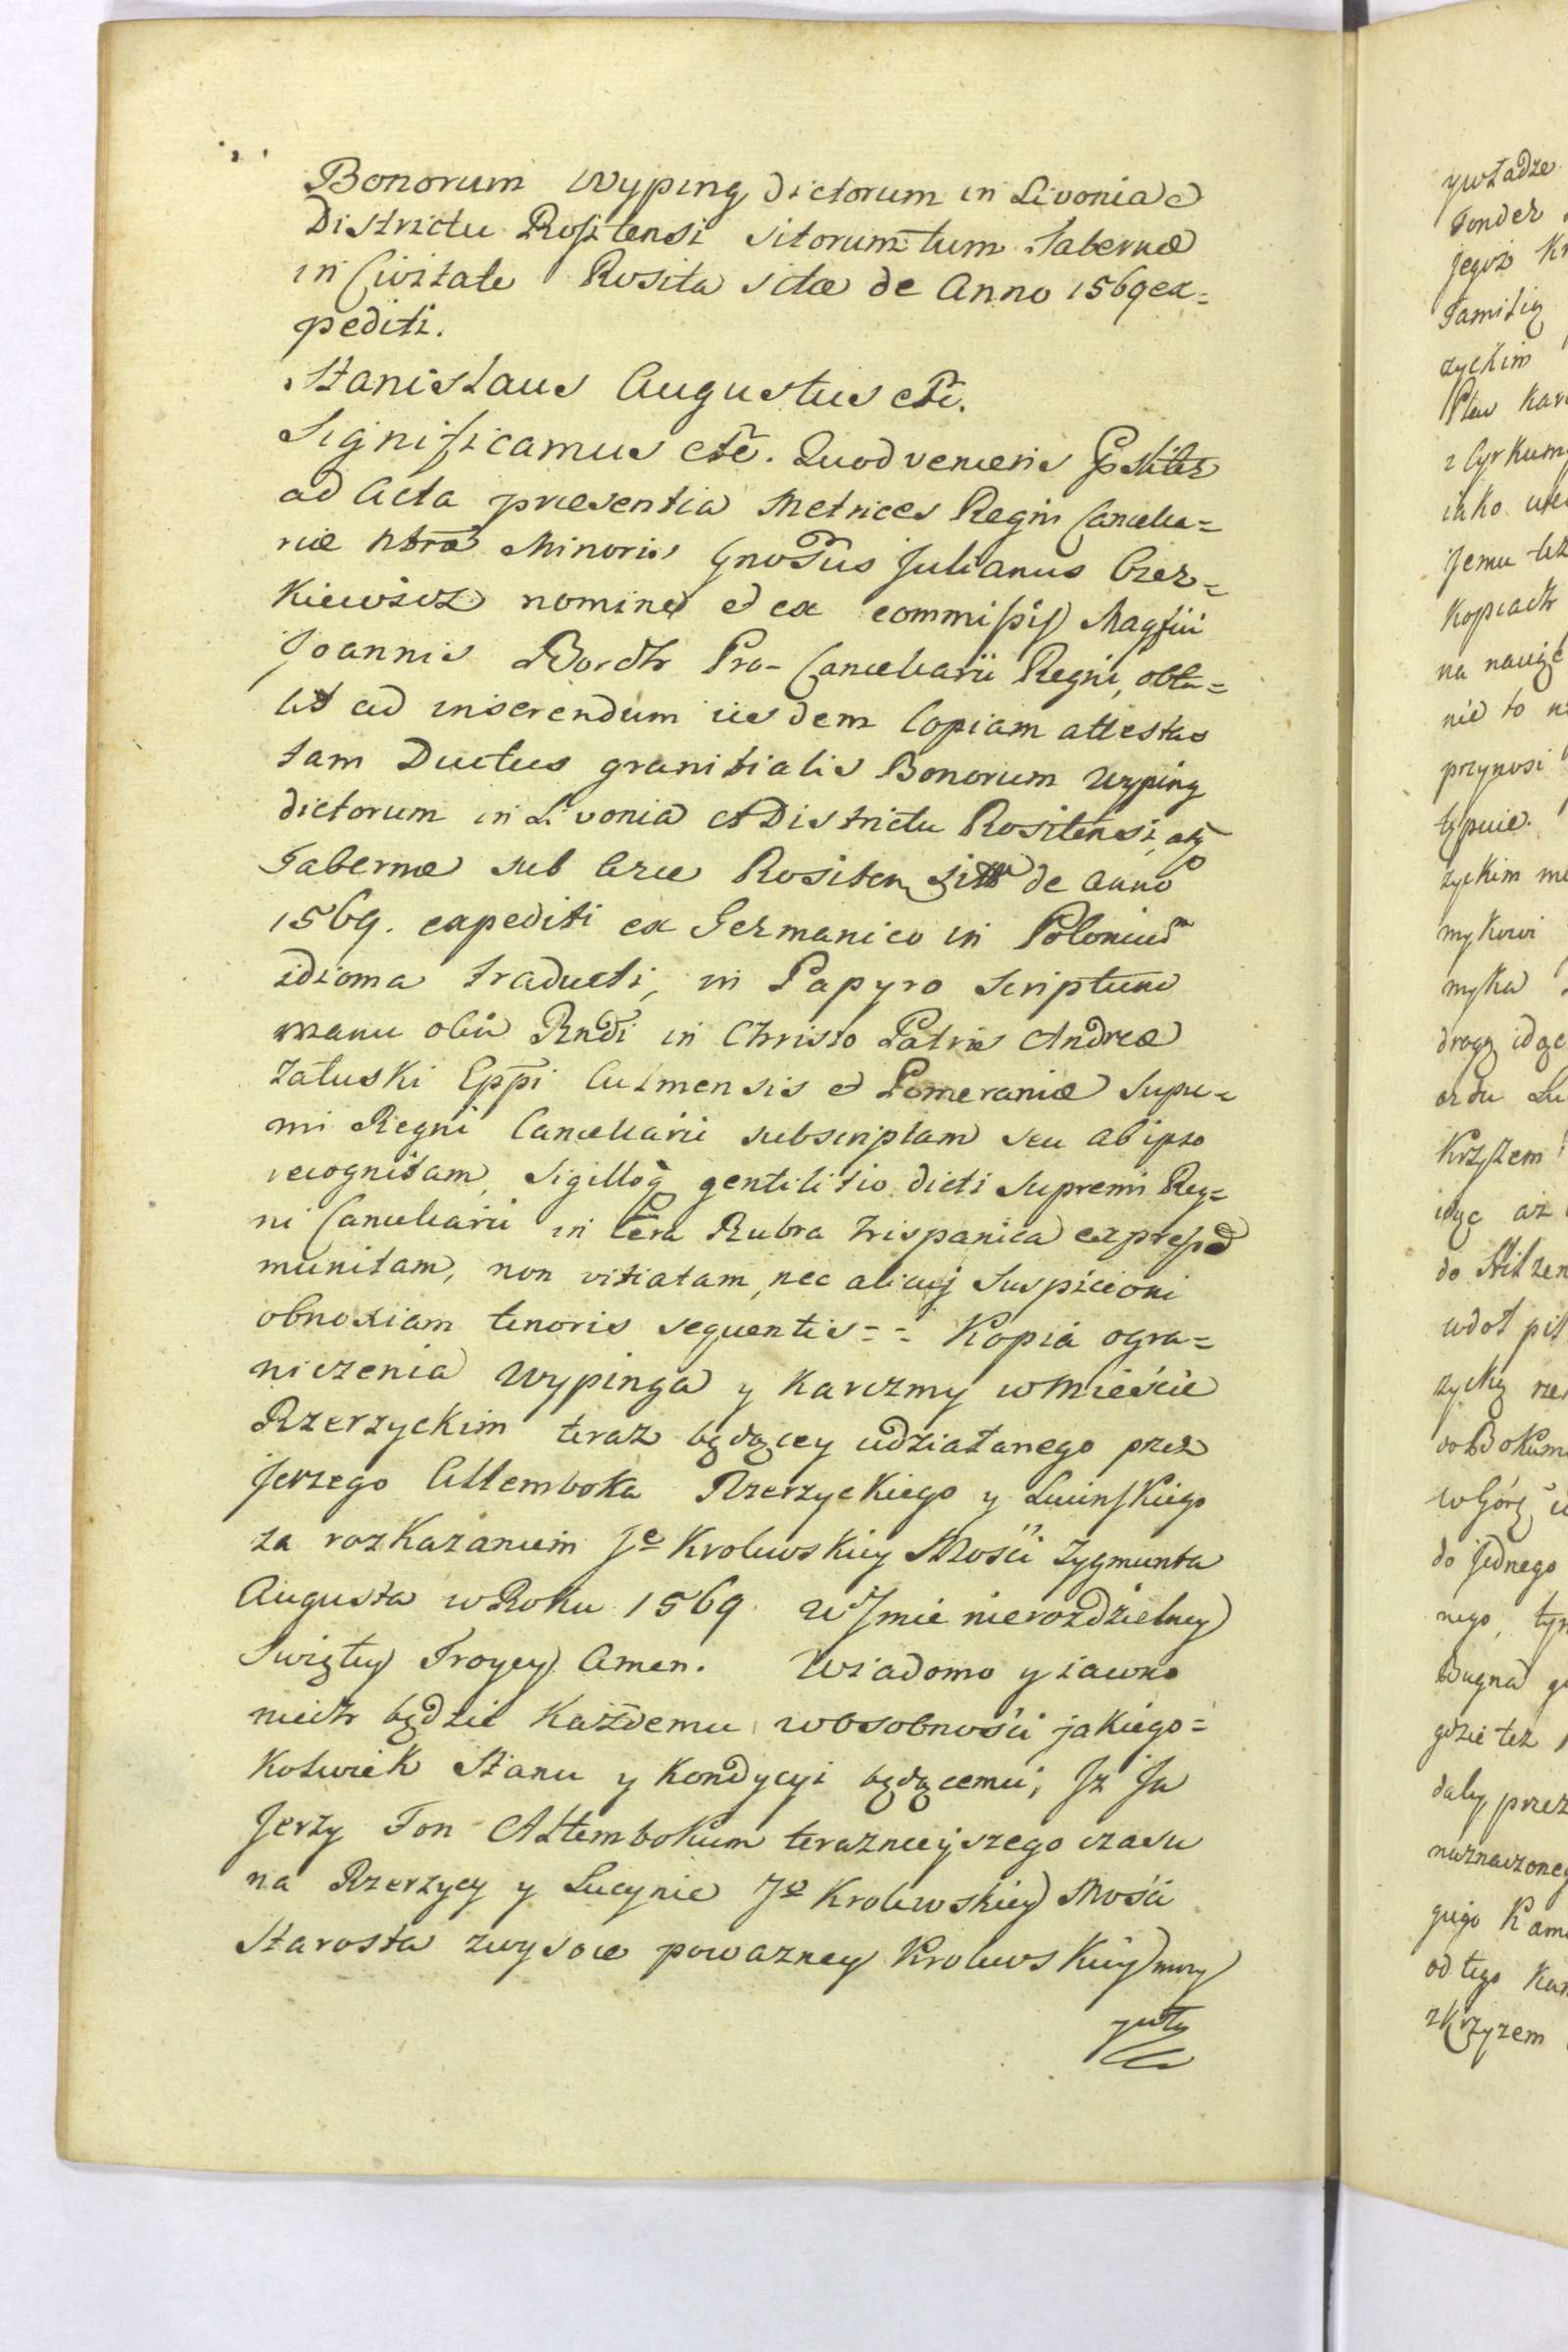 Bonorum Wyping dictorum in Livonia &
Districtu Rositensi sitorum tum Tabernæ
in Civitate Rosita sitæ de Anno 1569 ex=
pediti.
Stanislaus Augustus etc.
Significamus etc. Quod veniens psnliter
ad Acta præsentia Metrices Regni Cancella=
riæ Nræ Minoris Gnosus Julianus Czer=
kiewicz nomine & ex commissis Magfici
Joannis Borch Pro-Cancellarii Regni, obtu=
lit ad inserendum iisdem Copiam attesta
tam Ductus granitialis Bonorum Wyping
dictorum in Livonia et Districtu Rositensi, atq
Tabernæ sub Arce Rositen sitæ de Anno
1569. expediti ex Germanico in Polonicum
idioma traducti, in Papyro scriptam
manu olim Rndi in Christo Patris Andreæ
Załuski Eppi Culmensis & Pomeraniæ Supre=
mi Regni Cancellarii subscriptam seu ab ipso
recognitam, Sigilloq gentilitio dicti Supremi Reg=
ni Cancellarii in Cera Rubra hispanica expresso
munitam, non vitiatam, nec alicuj Suspicioni
obnoxiam tenoris sequentis == Kopia ogra=
niczenia Wypinga y karczmy w Mieście
Rzerzyckim teraz będącey udziałanego przez
Jerzego Altemboka Rzerzyckiego y Lucinskiego
za rozkazaniem Je Krolewskiey Mości Zygmunta
Augusta w Roku 1569. W Jmie nierozdzielney
Swiętey Troycy Amen. Wiadomo y iawno
niech będzie każdemu wosobności jakiego=
kolwiek Stanu y kondycyi będącemu, Jz Ja
Jerzy Fon Altembokum teraznieyszego czasu
na Rzerzycy y Lucynie Je Krolewskiey Mości
Starosta zwysoce powazney Krolewskiey mocy
ywładze
Fonder
jegoż
Familią
zyckim
Plew
z Cyrkum
iako
Jemu
kopiach
na
nie to
przynosi
zyckim
mykowi
myka
drogą idąc
Krzyzem
idąc aż
do
do jednego
nego,
gdzie tez
daley przez
naznaczoney
giego
od tego
zKrzyzem